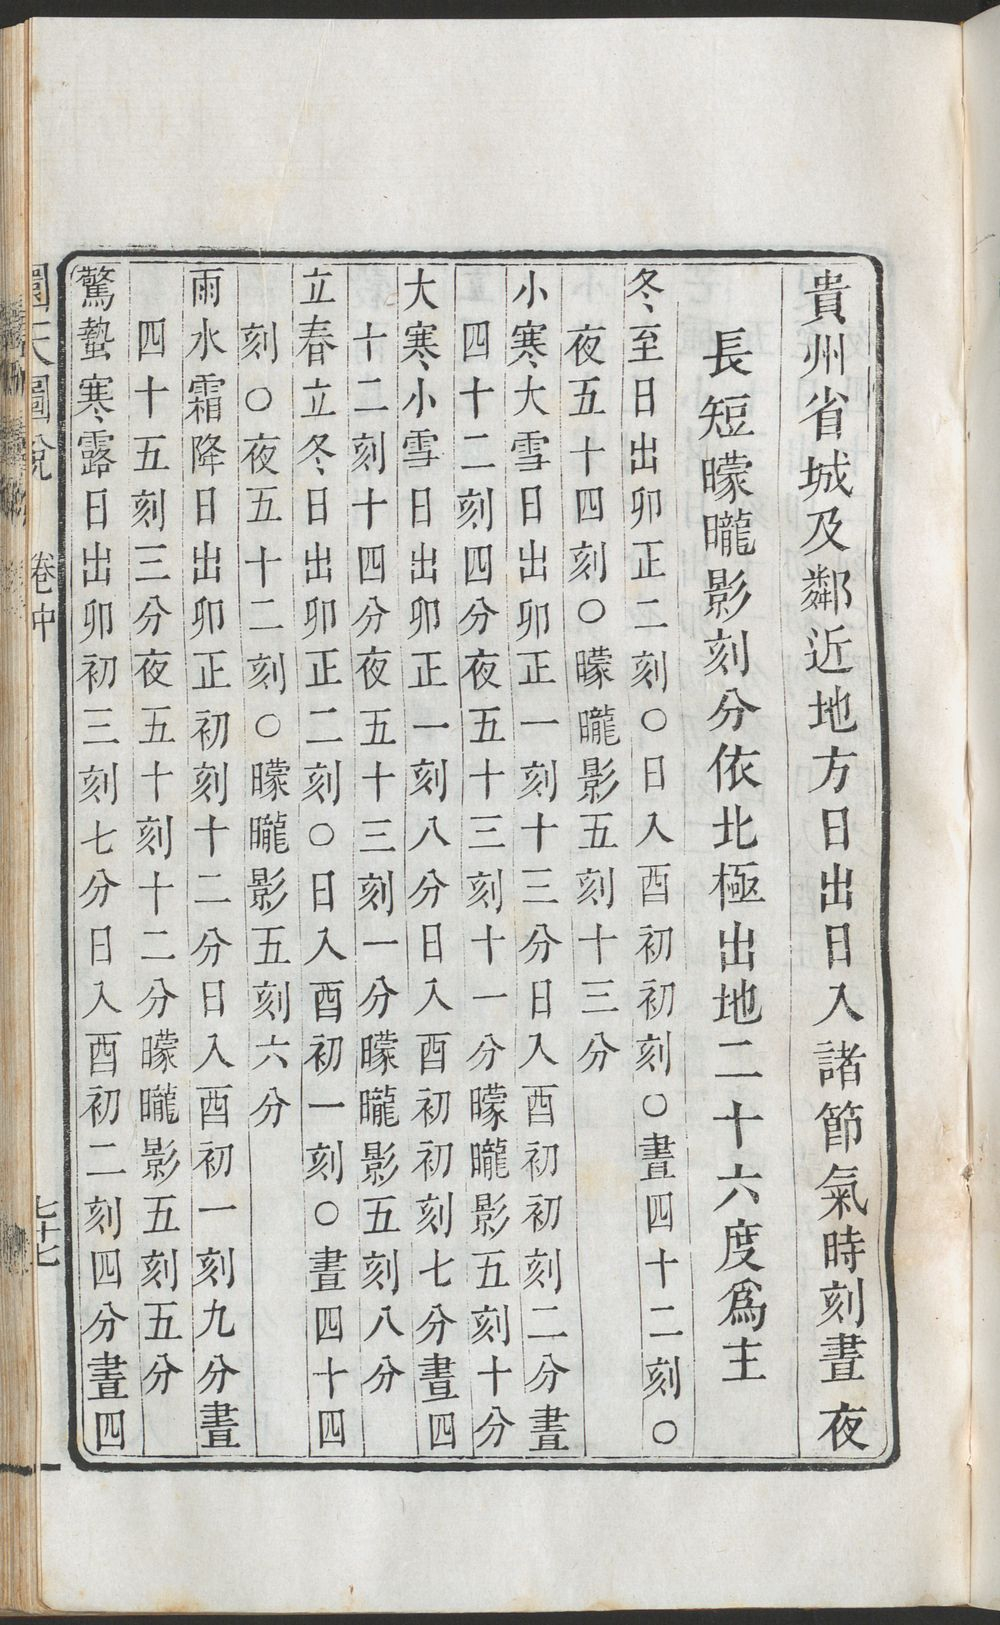 貴州省城及鄰近地方日出日入諸節氣時刻晝夜
長短曚曨影刻分依北極出地二十六度爲主
冬至日出卯正二刻〇日入酉初初刻〇晝四十二刻〇
夜五十四刻〇曚曨影五刻十三分
小寒大雪日出卯正一刻十三分日入酉初初刻二分晝
四十二刻四分夜五十三刻十一分曚曨影五刻十分
大寒小雪日出卯正一刻八分日入酉初初刻七分晝四
十二刻十四分夜五十三刻一分曚曨影五刻八分
立春立冬日出卯正二刻〇日入酉初一刻〇晝四十四
刻〇夜五十二刻〇曚曨影五刻六分
雨水霜降日出卯正初刻十二分日入酉初一刻九分晝
四十五刻三分夜五十刻十二分曚曨影五刻五分
驚蟄寒露日出卯初三刻七分日入酉初二刻四分晝四
圜天圖說 卷中 七十七